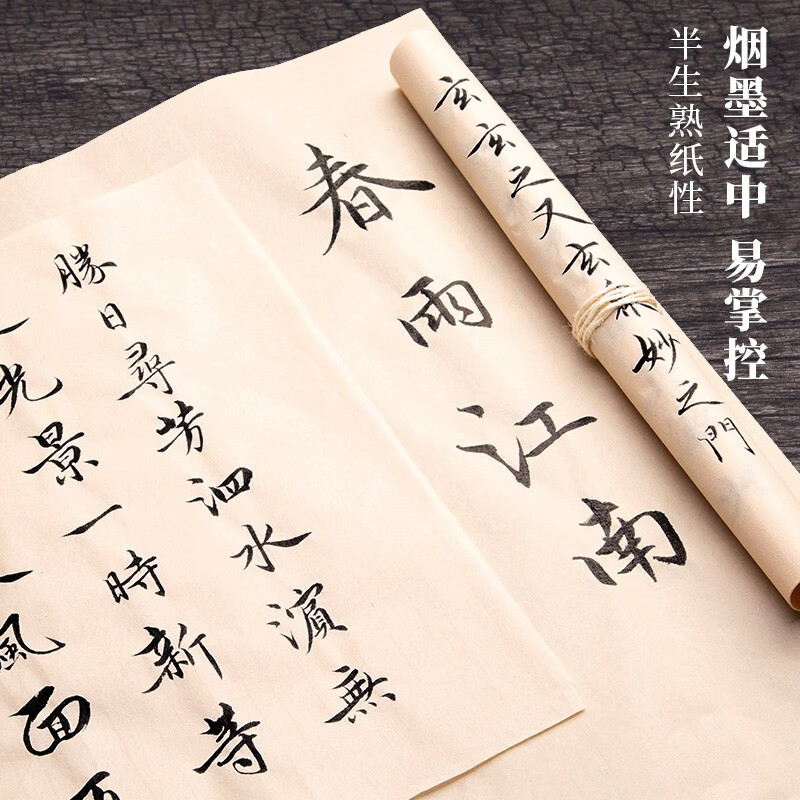 烟墨适中 易掌控
半生熟纸性
玄玄之又玄妙之門
春雨江南
勝日尋芳泗水濱無
光景一時新等
風面